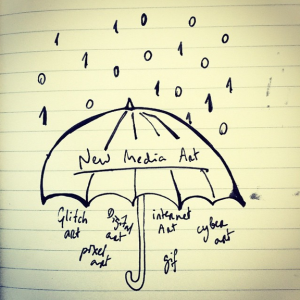 1 0 1 0
0 1 0 1
1 0 0 1
0
New Media Art
Glitch art
Digital art
internet Art
cyber art
pixel art
gif